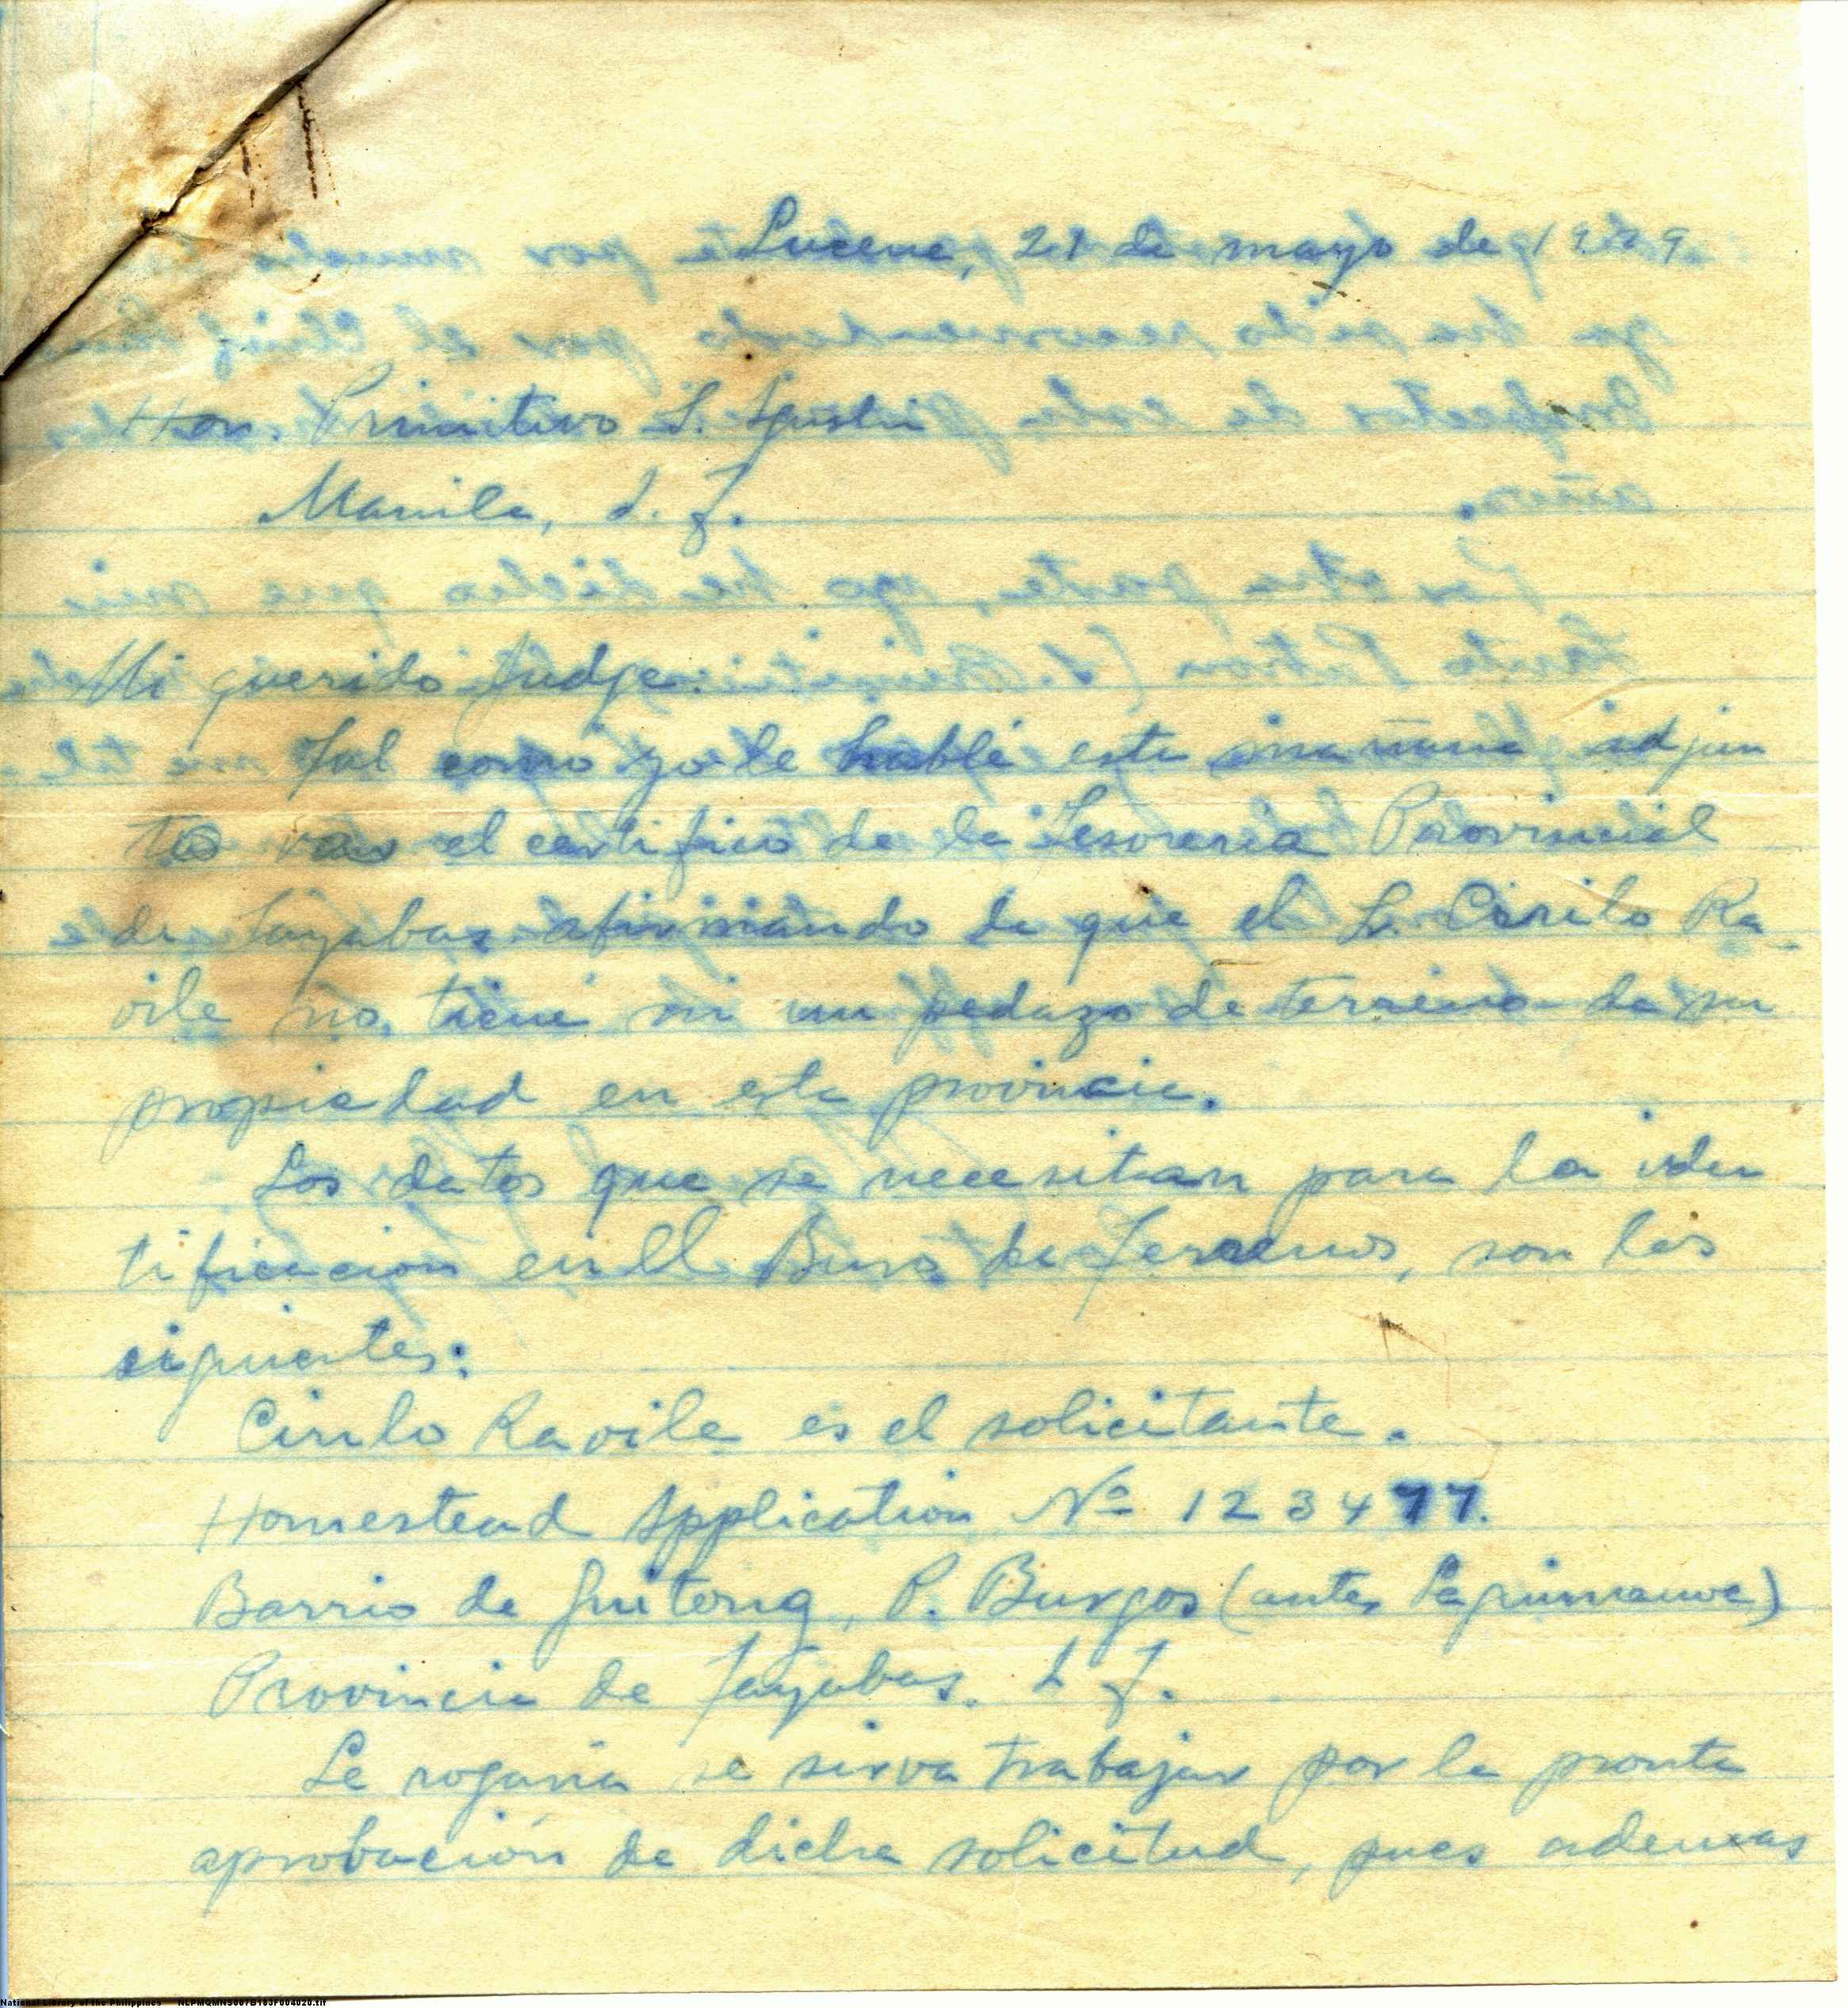 Lucena, 21 de mayo de 19 9
Hon. Primitivo S. Agustin
Manila, I. F.
Mi querido Judge:
Tal como yo le hablé esta mañana adjun
to va el certifico de la Tesoreria Provincial
de Tayabas afirmando de que el Sr. Cirilo Ra-
vile no tiene ni un pedazo de terreno de su
propiedad en esta provincia.
Los datos que se necesitan para la iden
tificacion en el Buro de Terrenos, son los
siguientes:
Cirilo Ravile es el solicitante.
Homestead Application No 123477.
Barrio de Guitong, P. Burgos (antes Laguimanoc)
Provincia de Tayabas. I F.
Le rogaria se sirva trabajar por la pronta
aprobación de dicha solicitud, pues ademas
National Library of the Philippines NLPMQMNS007B163F004020.tif